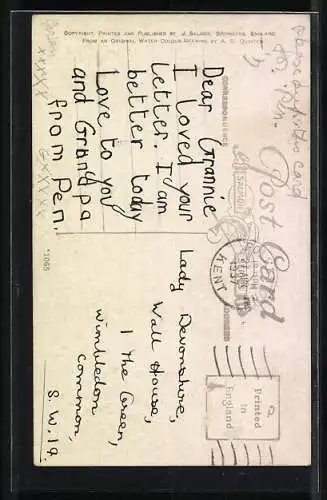 COPYRIGHT. PRINTED AND PUBLISHED BY J. SALMON, SEVENOAKS, ENGLAND
FROM AN ORIGINAL WATER COLOUR DRAWING BY A. R. QUINTON
Please put this card
CORRESPONDENCE
Post Card
J. SALMON
SEVENOAKS
ADDRESS
Dear Grannie
I loved your
letter. I am
better today
Love to you
and Grandpa
from Pen.
xxxxx
*1065
KENT
1937
Lady Devonshire,
Wall House,
1 The Green,
Wimbledon
Common,
S.W.19.
Printed
in
England